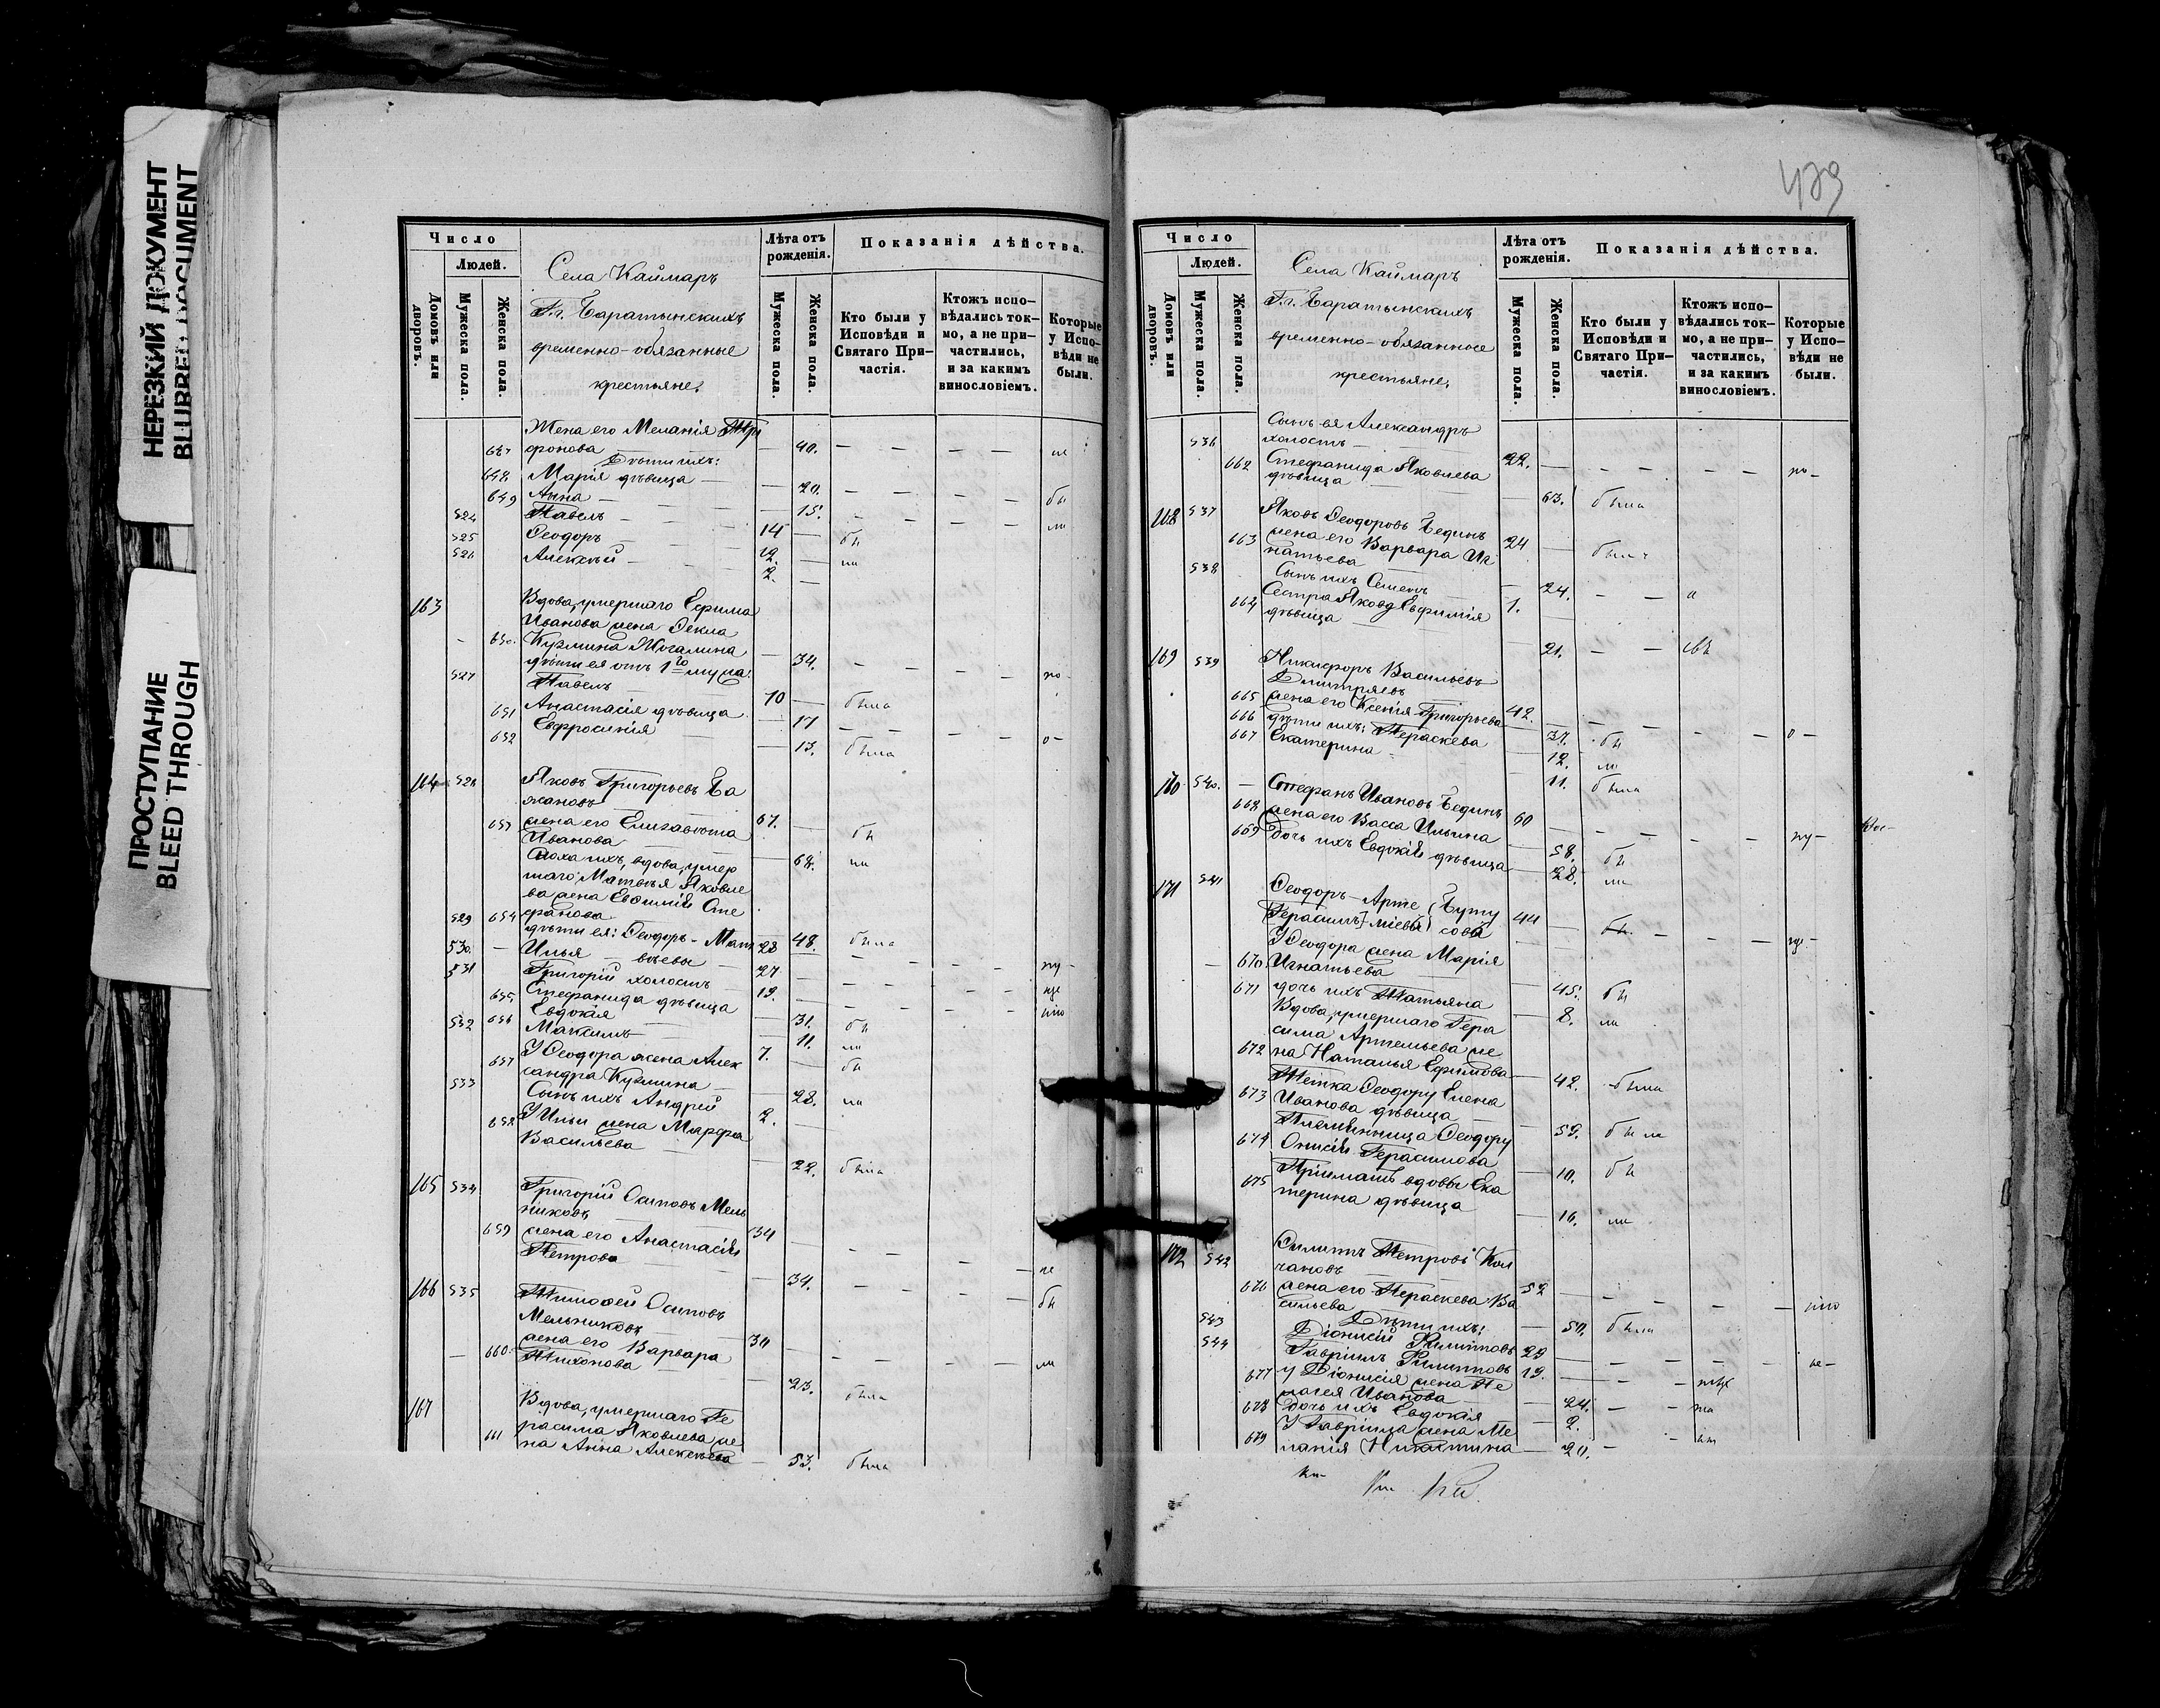 НЕРЕЗКИЙ ДОКУМЕНТ
BLURRED DOCUMENT
ПРОСТУПАНИЕ
BLEED THROUGH
Число
Людей.
Домовъ или дворовъ.
Мужеска пола.
Женска пола.
Села Каймаръ
Гг. Баратынскихъ
временно-обязанные
крестьяне.
Лѣта отъ рожденія.
Мужеска пола.
Женска пола.
Показанія дѣйства.
Кто были у Исповѣди и Святаго Причастія.
Ктожъ исповѣдались токмо, а не причастились, и за какимъ винословіемъ.
Которые у Исповѣди не были.
Жена его Меланія Три
647 фонова — 40.
Дѣти ихъ:
648 Марія дѣвица — 20.
649 Анна — 15.
524 Павелъ — 14
525 Ѳеодоръ — 12.
526 Алексѣй — 2.
163 Вдова, умершаго Ефима
Иванова жена Ѳекла
650. Кузмина Жогалина — 34.
дѣти ея отъ 1го мужа:
527 Павелъ 10 — была
651 Анастасія дѣвица — 17
652 Евфросинія — 13. была
164 528 Яковъ Григорьевъ Ба
жановъ 67.
653 жена его Елизавета
Иванова — 68.
Сноха ихъ, вдова, умер
шаго Матвѣя Яковле
ва жена Евфимія Сте
654 фанова — 48. была
529 дѣти ея: Ѳеодоръ - Мат 28
530. Илья — вѣевы 27
531 Григорій холостъ 19.
655. Стефанида дѣвица — 31.
656 Евдокія — 11.
532 Максимъ 7.
657 У Ѳеодора жена Алек
сандра Кузмина — 28.
533 Сынъ ихъ Андрей 2.
658 У Ильи жена Марфа
Васильева — 22. была
165 534 Григорій Осиповъ Мель
никовъ 34
659 жена его Анастасія
Петрова — 34.
166 535 Тимофей Осиповъ
Мельниковъ 30
660 жена его Варвара
Тихонова — 23. была
167 Вдова, умершаго Ге
расима Яковлева же
661 на Анна Алексѣева — 53. была
439
Число
Людей.
Домовъ или дворовъ.
Мужеска пола.
Женска пола.
Села Каймаръ
Гг. Баратынскихъ
временно-обязанные
крестьяне.
Лѣта отъ рожденія.
Мужеска пола.
Женска пола.
Показанія дѣйства.
Кто были у Исповѣди и Святаго Причастія.
Ктожъ исповѣдались токмо, а не причастились, и за какимъ винословіемъ.
Которые у Исповѣди не были.
Сынъ ея Александръ
536 холостъ — 22.
662 Стефанида Яковлева
дѣвица — 63. была
168 537 Яковъ Ѳеодоровъ Бединъ 24
663 жена его Варвара Иг
натьева — 24.
538 Сынъ ихъ Семенъ 1.
664 Сестра Якову Евфимія
дѣвица — 21.
169 539 Никифоръ Васильевъ
Дмитріевъ 42.
665 жена его Ксенія Григорьева — 37.
666 дѣти ихъ: Параскева — 12.
667 Екатерина — 11. была
170 540. Стефанъ Ивановъ Бединъ 60
668 жена его Васса Ильина — 58.
669 дочь ихъ Евдокія дѣвица — 28.
171 541 Ѳеодоръ - Арте Бугу 44
Герасимъ} міевы совы
У Ѳеодора жена Марія
670 Игнатьева — 45.
671 дочь ихъ Татьяна — 8.
Вдова, умершаго Гера
сима Артемьева же
672 на Наталья Ефимова — 42. была
Тетка Ѳеодору Елена
673 Иванова дѣвица — 59. была
Племянница Ѳеодору
674 Онисія Герасимова — 10.
Пріемышъ вдовы Ека
675 терина дѣвица — 16.
172 542 Филиппъ Петровъ Кол
чановъ 52
676 жена его Параскева Ва
сильева — 50. была
Дѣти ихъ:
543 Діонисій Филипповъ 29
544 Гавріилъ Филипповъ 19.
677 У Діонисія жена Пе
лагея Иванова — 24.
678 дочь ихъ Евдокія — 2.
У Гавріила жена Ме
679 ланія Никитина — 20.